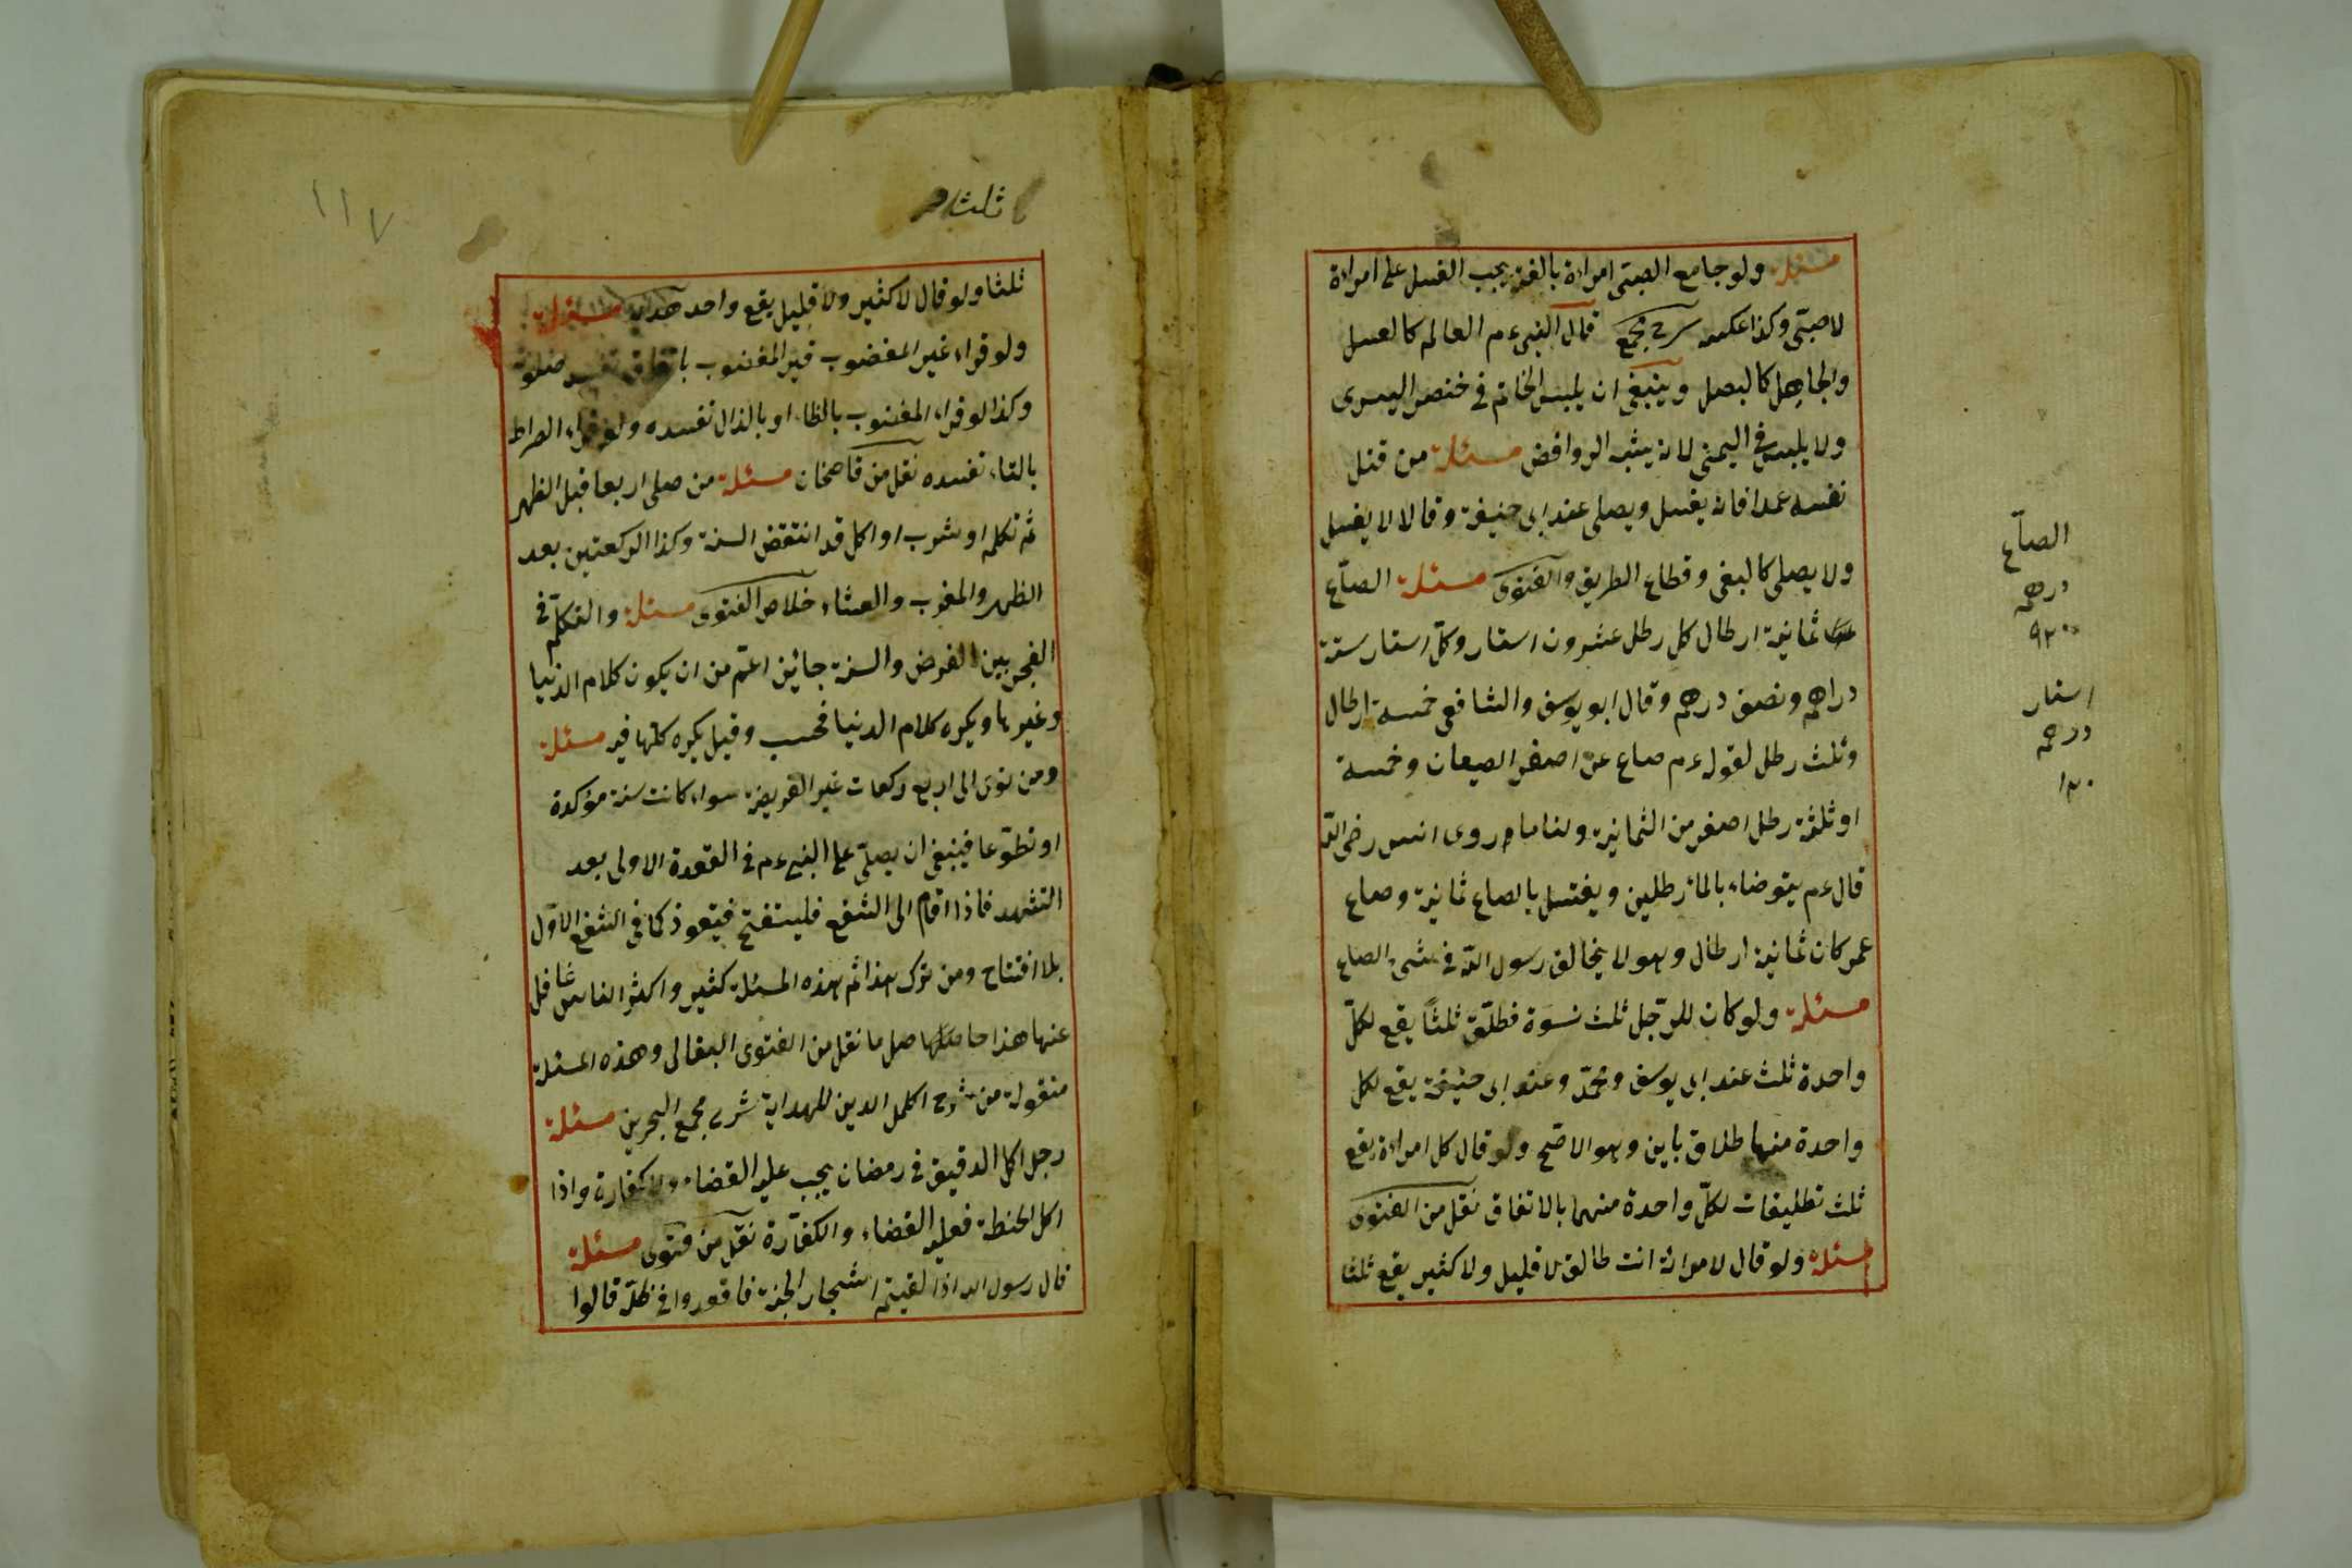 مسئلة ولو جامع الصبتى امراءة بالغة يجب الغسل على امراءة
لا صبّى وكذا عكسه شرح مجمع قال النبى عم العالم كالعسل
والجاهل كالبصل وينبغى ان يلبس الخاتم فى خنصر اليسرى
ولا يلبس فى اليمنى لانه يشبه الروافض مسئلة من قتل
نفسه عمدا فانه يغسل ويصلى عند ابى حنيفة وقالا لا يغسل
ولا يصلى كالبغى وقطاع الطريق والفتوى مسئلة الصّاع
ثمانية ارطال كل رطل عشرون استار وكلّ استار ستة
دراهم ونصف درهم وقال ابو يوسف والشافعى خمسة ارطال
وثلث رطل لقوله عم صاع عن اصغر الصيعان وخمسة
او ثلثة رطل اصغر من الثمانية ولنا ما روى انس رضى الله
قال عم يتوضاء بالماء رطلين ويغتسل بالصاع ثمانية وصاع
عمر كان ثمانية ارطال وهو لا يخالف رسول الله فى الصاع
مسئلة ولو كان للرّجل ثلث نسوة فطلّق ثلثاً يقع لكلّ
واحدة ثلث عند ابى يوسف ومحمّد وعند ابى حنيفة يقع لكل
واحدة منها طلاق باين وهو الاصّح ولو قال كل امراءة يقع
ثلث تطليقات لكلّ واحدة منهما بالاتفاق نقل من الفتوى
مسئلة ولو قال لامراته انت طالق لا قليل ولا كثير يقع ثلثا
الصآع
درهم
استار
درهم
١٣٠
١١٧
ثلثا
ثلثا ولو قال لا كثير ولا قليل يقع واحد هداية مسئلة
ولو قراء غير المغضوب قير المغضوب باتفاق تفسد صلوته
وكذا لو قراء المغضوب بالظاء او بالذال تفسده ولو قراء الصراط
بالتاء تفسده نقل من قاضخان مسئلة من صلى اربعا قبل الظهر
ثم تكلم او شرب او اكل قد انتقض السنة وكذا الركعتين بعد
الظهر والمغرب والعشاء خلاص الفتوى مسئلة والتكلّم فى
الفجر بين الفرض والسنة جائز اعتم من ان يكون كلام الدنيا
وغيرها ويكره كلام الدنيا فحسب وقيل يكره كلها فيه مسئلة
ومن نوى الى اربع ركعات غير الفريضة سواء كانت سنة مؤكدة
او تطوّعا فينبغى ان يصلّى على النبى عم فى القعدة الاولى بعد
التشهد فاذا اقام الى الشفع فليستفتح فيتعوذ كما فى الشفع الاوّل
بلا افتتاح ومن ترك هذا ثم هذه المسئلة كثير واكثر الناس غافل
عنها هذا حاصل ما نقل من الفتوى البقالى وهذه المسئلة
منقولة من شرح اكلمل الدين للهداية شرح مجمع البحرين مسئلة
رجل اكل الدقيق فى رمضان يجب عليه القضاء ولا كفارة واذا
اكل الحنطة فعليه القضاء والكفّارة نقل من فتوى مسئلة
قال رسول الله اذا لقيتم اشجار الجنة فاقعدوا فى ظلّه قالوا